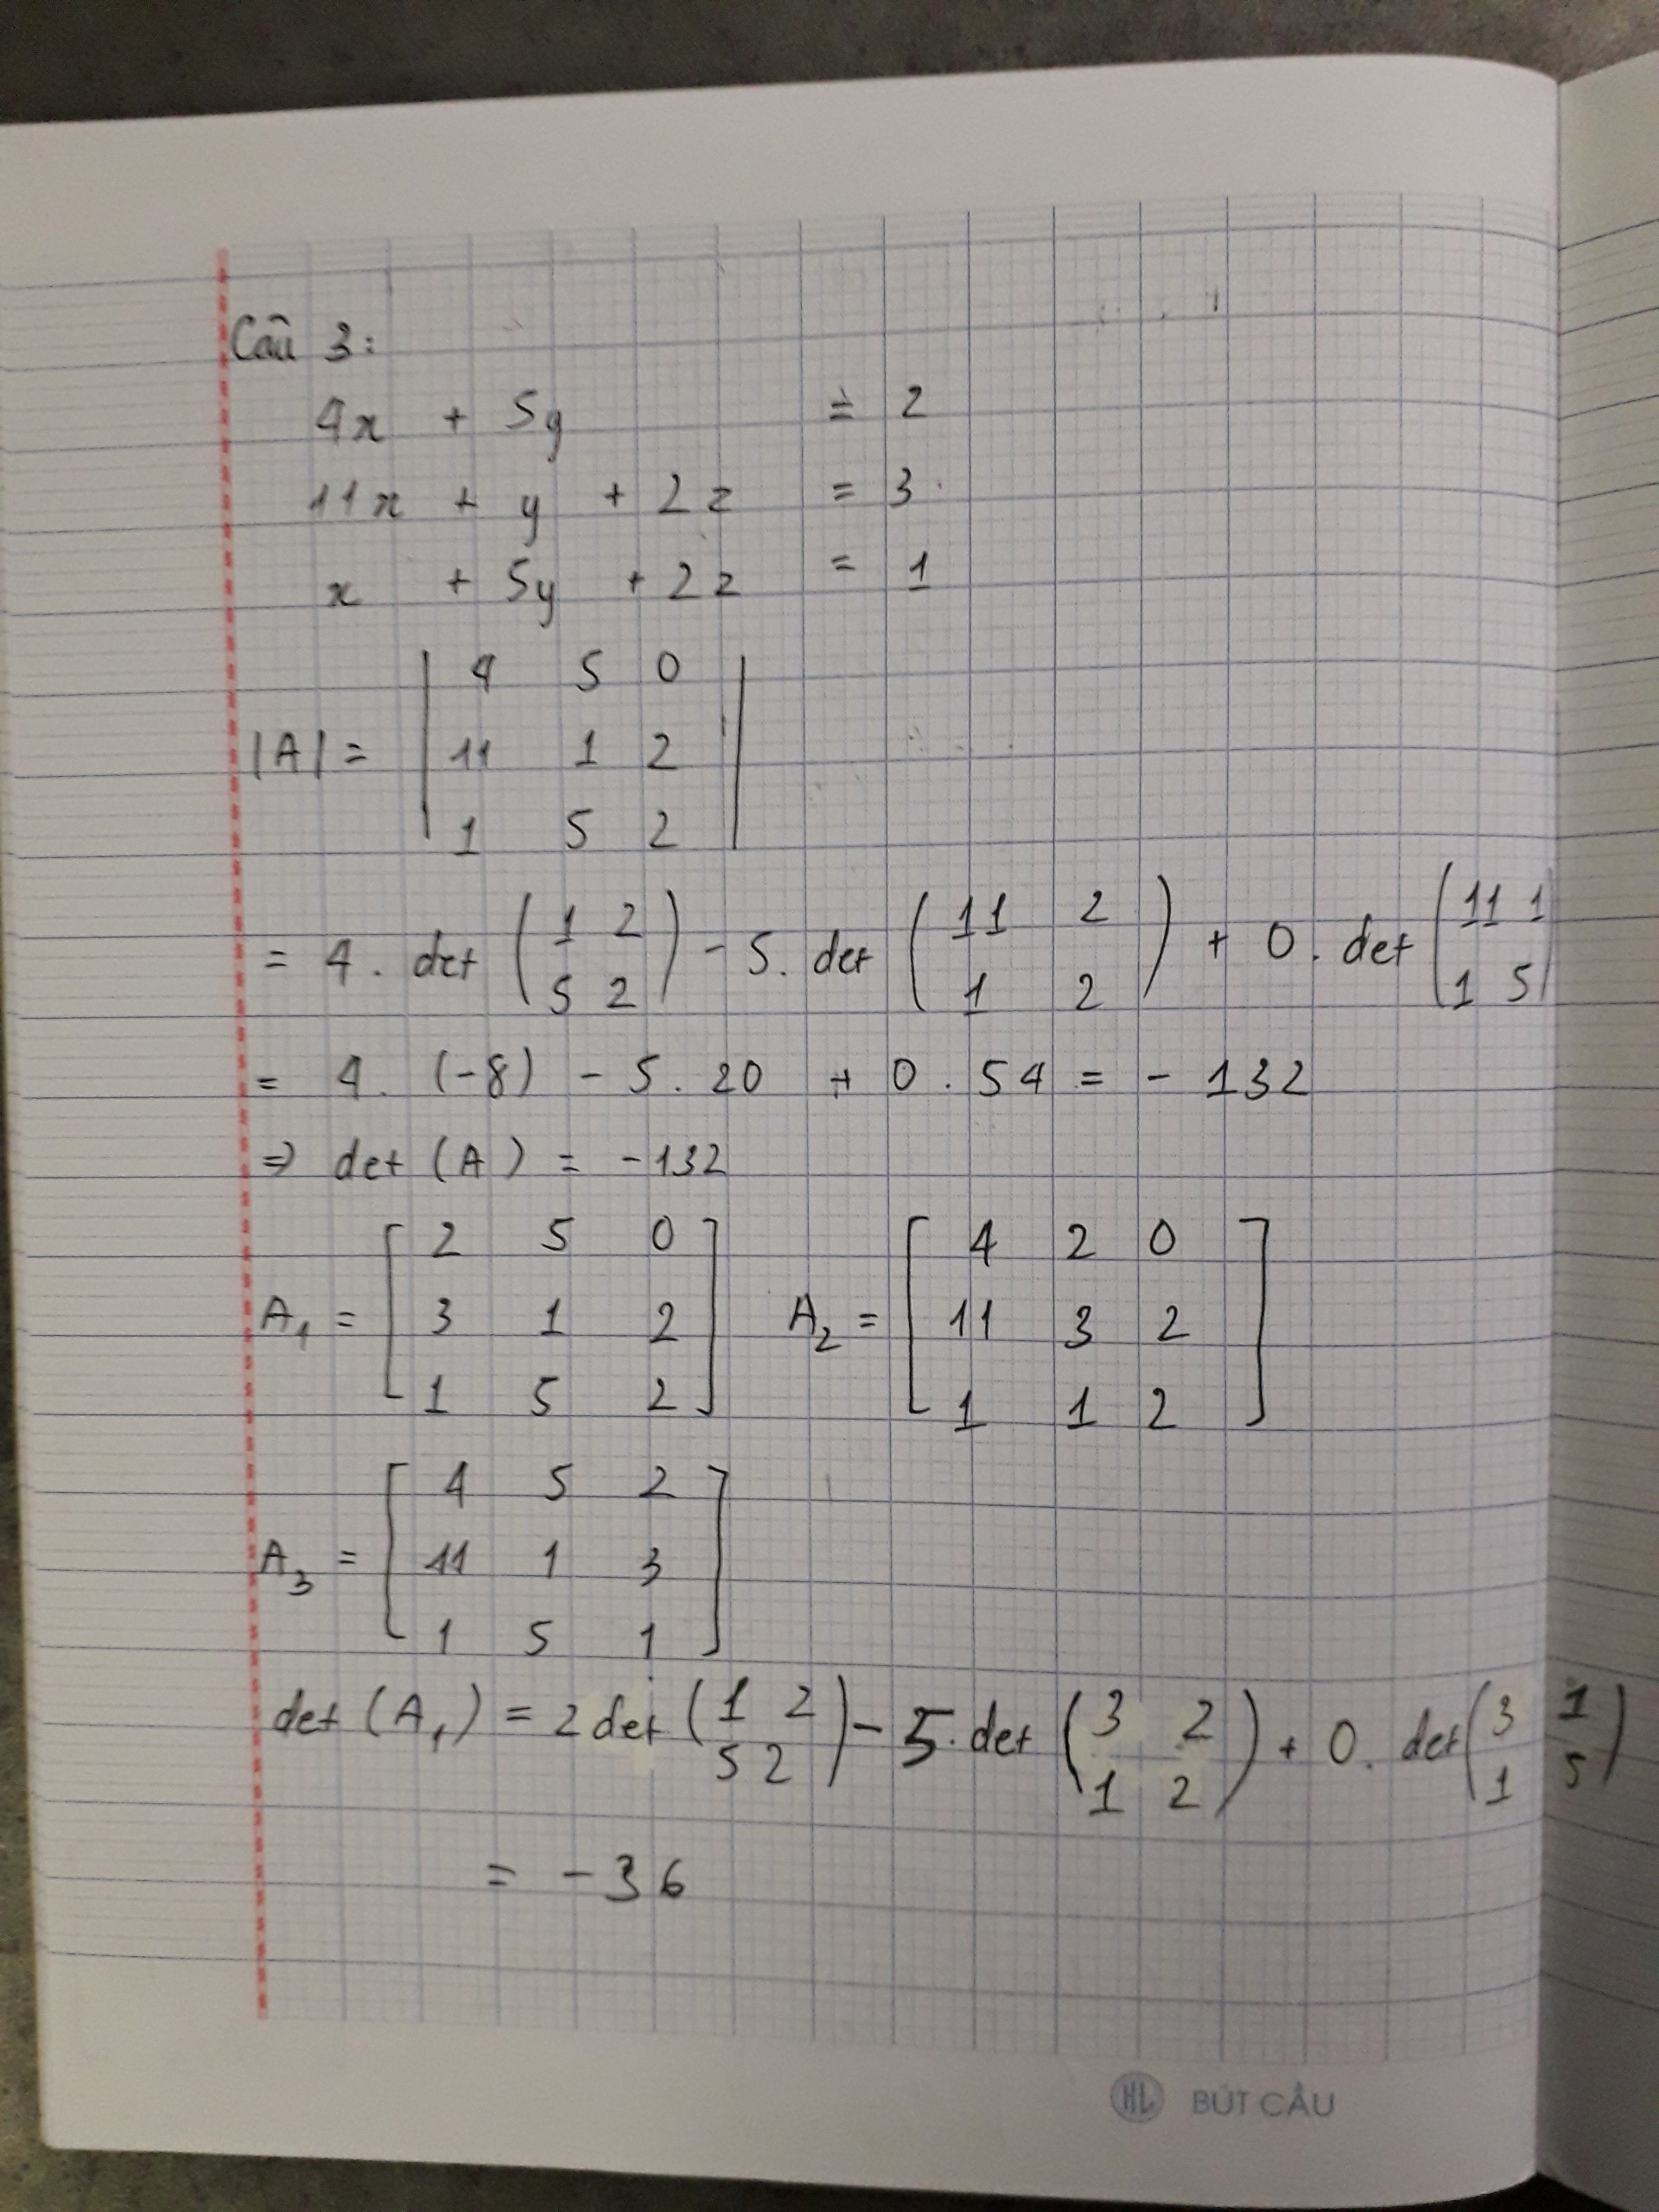 Câu 3:
4x + 5y = 2
11x + y + 2z = 3
x + 5y + 2z = 1
|A| = | 4 5 0 |
| 11 1 2 |
| 1 5 2 |
= 4. det ( 1 2 ) - 5. det ( 11 2 ) + 0. det ( 11 1 )
( 5 2 ) ( 1 2 ) ( 1 5 )
= 4. (-8) - 5. 20 + 0. 54 = - 132
⇒ det (A) = -132
A₁ = [ 2 5 0 ] A₂ = [ 4 2 0 ]
[ 3 1 2 ] [ 11 3 2 ]
[ 1 5 2 ] [ 1 1 2 ]
A₃ = [ 4 5 2 ]
[ 11 1 3 ]
[ 1 5 1 ]
det (A₁) = 2 det ( 1 2 ) - 5. det ( 3 2 ) + 0. det ( 3 1 )
( 5 2 ) ( 1 2 ) ( 1 5 )
= -36
HL BÚT CẦU